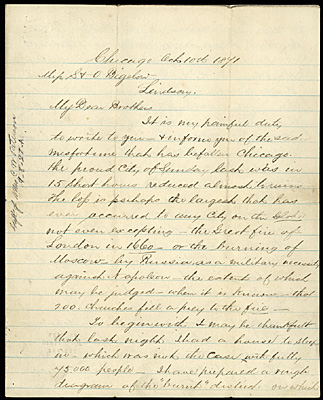 Chicago Oct 10th 1871
Messrs S & O Bigelow
Lindsay.
My Dear Brothers
It is my painful duty
to write to you & inform you of the sad
misfortune that has befallen Chicago.
the proud City of Sunday last was in
15 short hours reduced almost to ruins
The loss is perhaps the largest that has
ever occurred to any City on the
not even excepting – the Great fire of
London in 1660 – or the burning of
Moscow – by Russia, as a military necessity
against Napoleon – the extent of which
may be judged – when it is known – that
200 churches fell a prey to the fire –
To begin with I may be thankful
that last night I had a house to sleep
in – which was not the case with fully
75000 people – I have prepared a rough
diagram of the "burnt" district on which